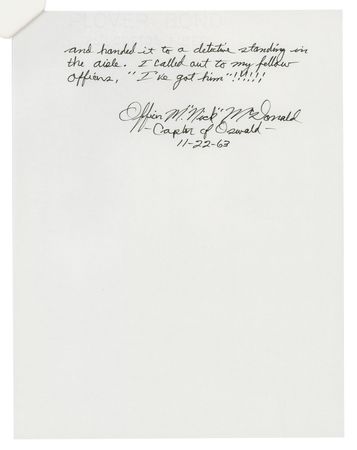 and handed it to a detective standing in
the aisle. I called out to my fellow
officers, "I've got him"!!!!!!
Officer M. "Nick" McDonald
– Captor of Oswald –
11-22-63